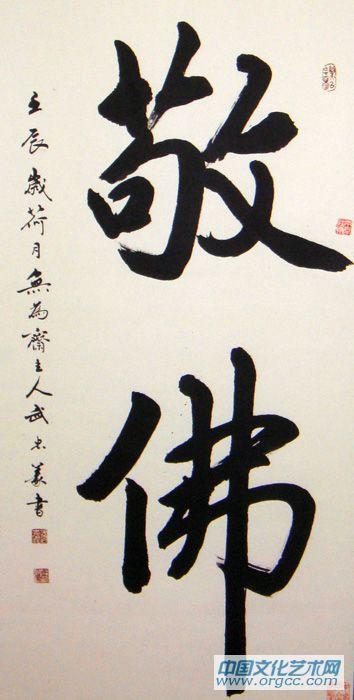 敬佛
壬辰歲荷月無為齋主人武忠義書
中国文化艺术网
www.orgcc.com